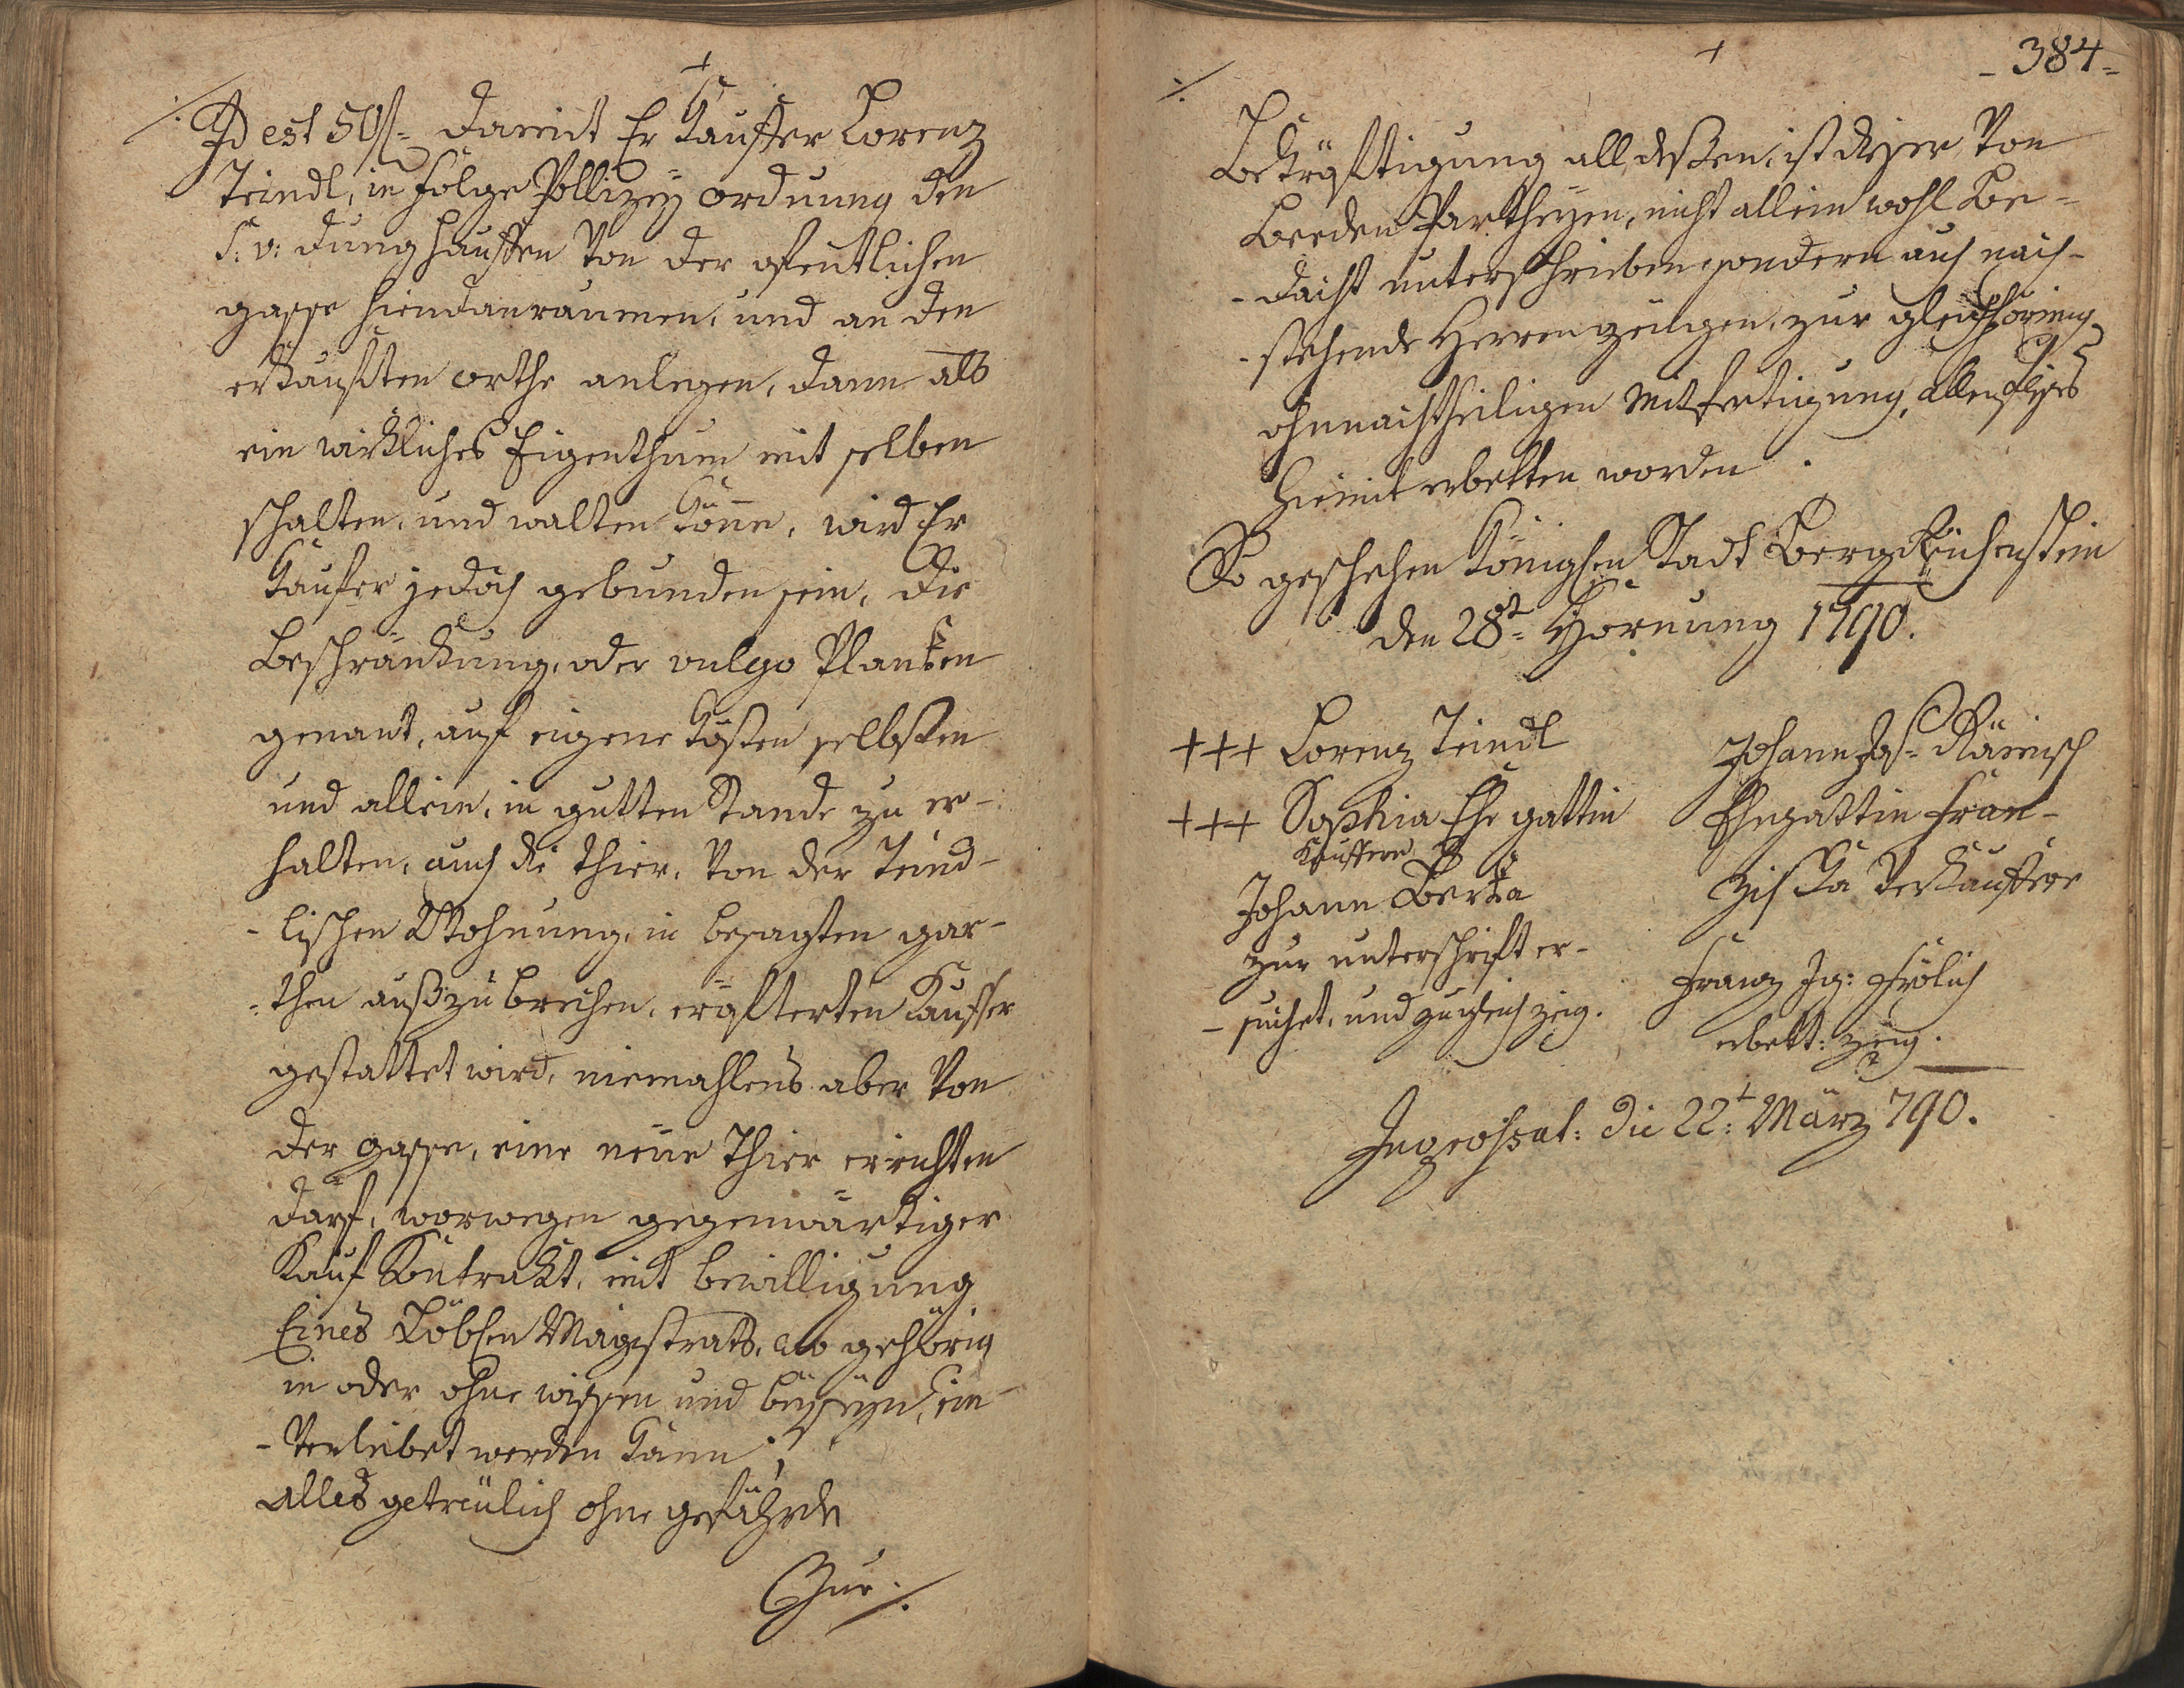 Id est 50f= damit Er Kauffer Lorenz
Teindl, in folge Pollizeÿ ordnung den
S: v: dunghauffen von der ofentlichen
gasse hiendanraumen, und an den
erkaufften orthe anlegen, dann als
ein wirkliches Eigenthum mit selben
schalten, und walten könne, wird Er
Kaufer jedoch gebunden sein, die
Beschränkung, oder vulgo Planken
genant, auf eigene Kösten selbsten
und allein, in gutten Stande zu er-
halten, auch die thier, von der Teind-
-lischen Wohnung, in besagten gar-
-then auß zu brechen, eröfterten Kauffer
gestattet wird, niemahlens aber von
der gasse, eine neüe Thier errichten
darf, worwegen gegenwärtiger
Kauf Kontrakt, mit bewilligung
Eines Löblen Magistrats, wo gehörig
in oder ohne wissen und beÿseÿn, ein
-verleibet werden kann;
alles getreülich ohne gefährde
Zur ./.
-384-
./.
Bekräftigung all dessen, ist dieser von
Beeden Partheÿen, nicht allein wohl Be=
-dacht unterschrieben sondern auch nach-
-stehende Herren zeügen, zur
ohnnachtheiligen Mitfertigung,
hiemit erbetten worden.
So geschehen Königlen Stadt Bergreichenstein
den 28t= Hornung 1790.
+++ Lorenz Teindl
+++ Sophia Ehe gattin
Kauffere
Johann Berka
zur unterschrift er-
-suchet, und zugleich zeig.
Johann
Ehegattin Fran-
ziska Verkauffere
Franz Ig: Frölich
erbett: zeüg.
Ingrossat: die 22t: März 790.